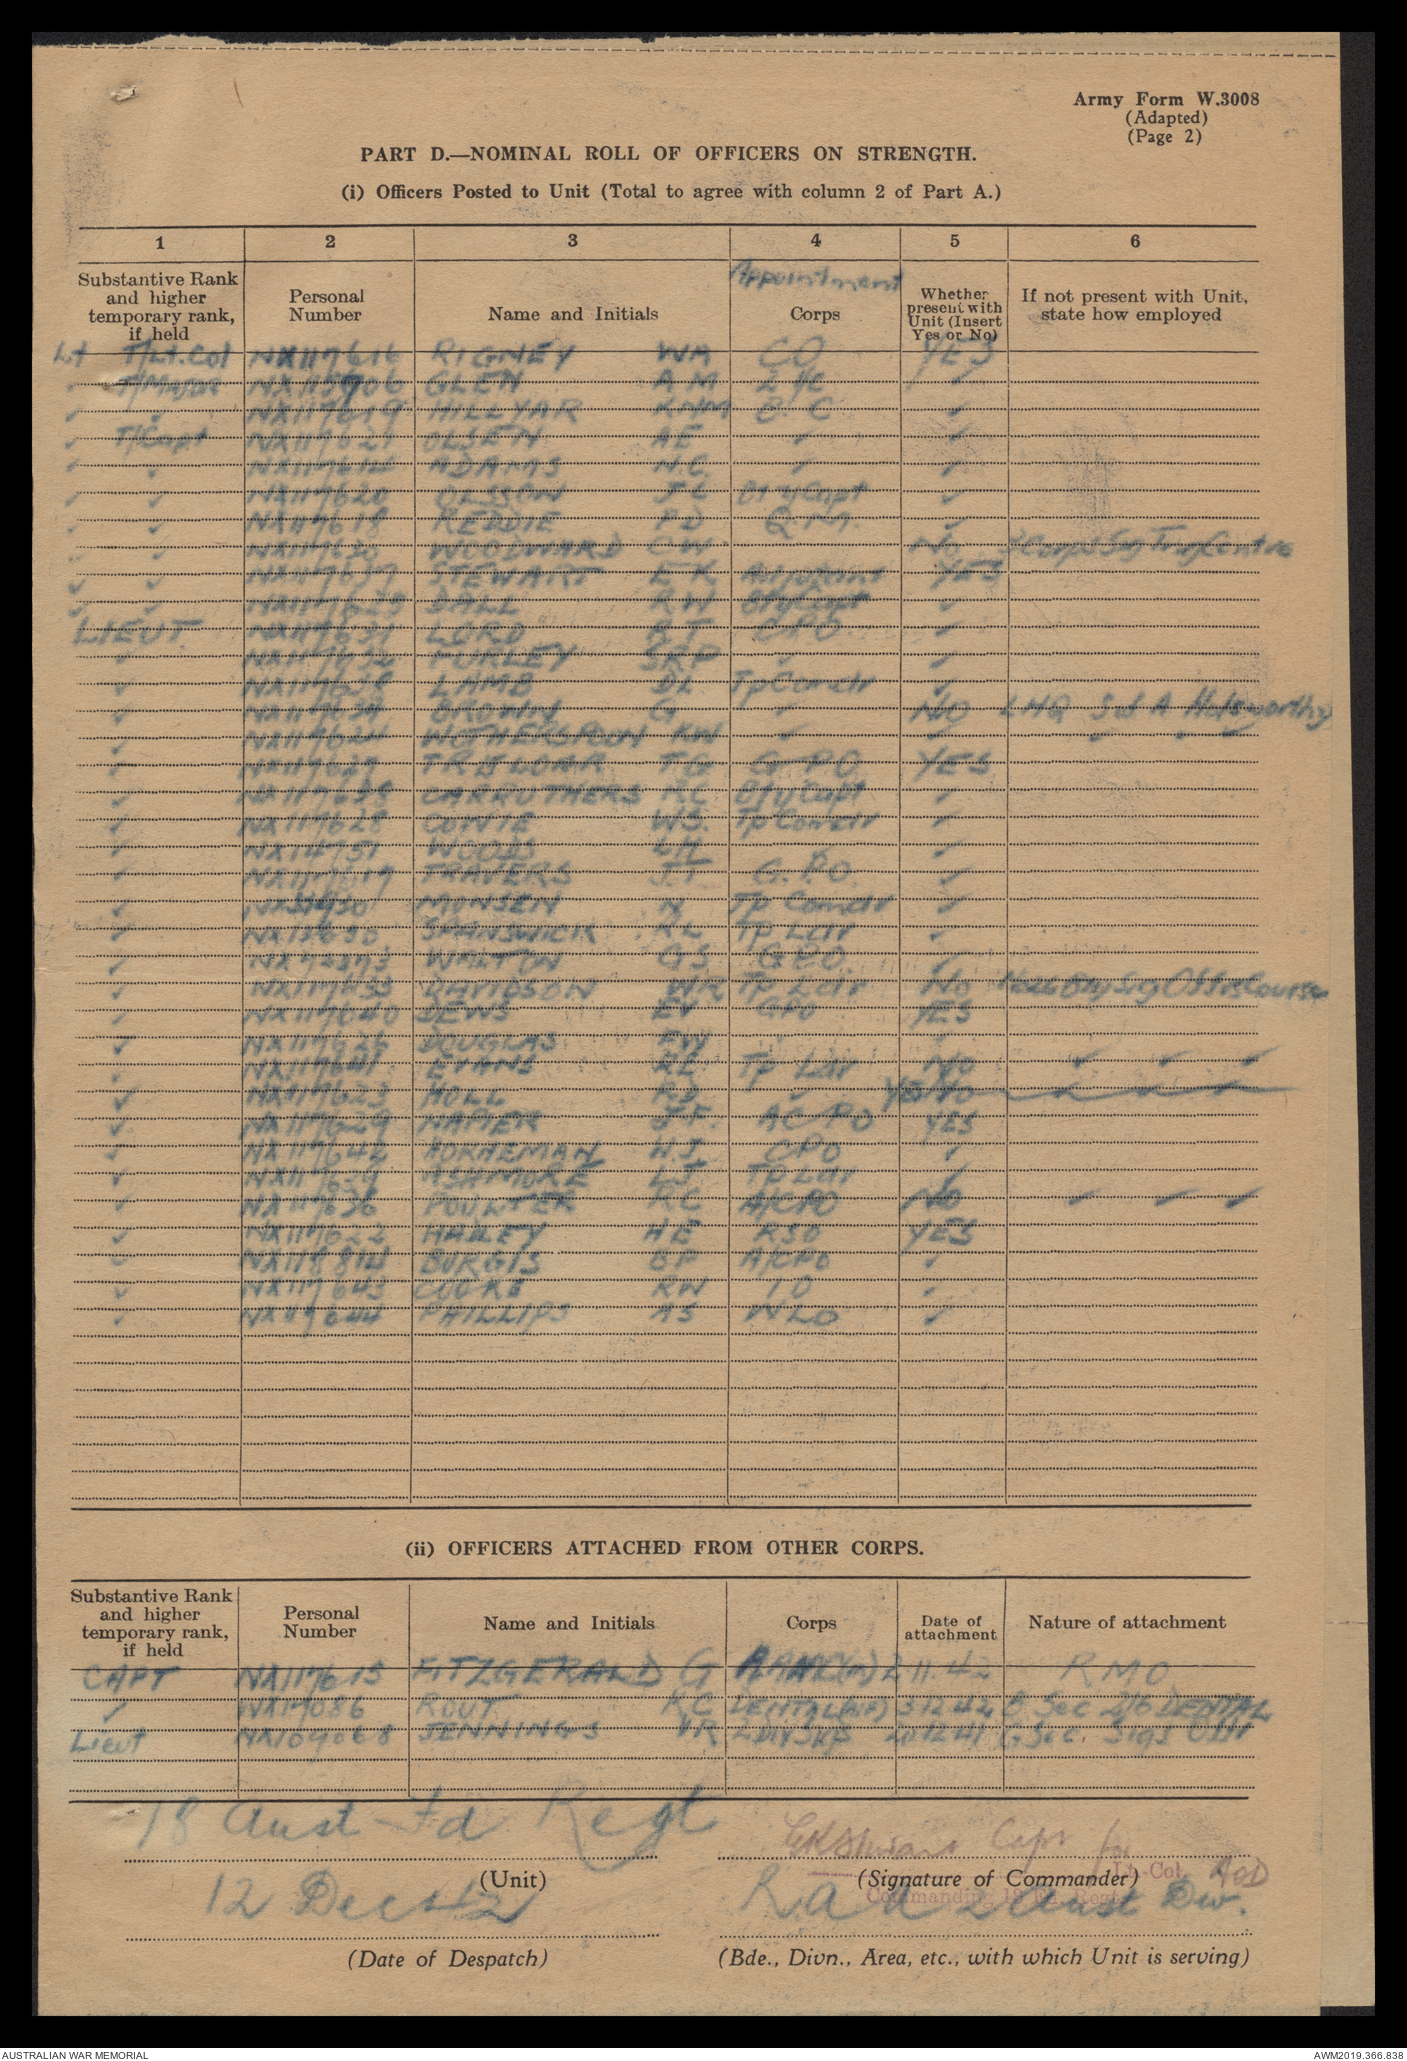 Army Form W.3008
(Adapted)
(Page 2)
PART D.—NOMINAL ROLL OF OFFICERS ON STRENGTH.
(i) Officers Posted to Unit (Total to agree with column 2 of Part A.)
1 2 3 4 5 6
Substantive Rank and higher temporary rank, if held Personal Number Name and Initials Appointment Corps Whether present with Unit (Insert Yes or No) If not present with Unit, state how employed
Lt T/Lt.Col NX117616 RIGNEY WA CO YES
✓ T/Major GLEN AM 2 I/C ✓
✓ ✓ NX117619 HILLYAR KNM B.C ✓
✓ T/Capt NX117621 OLSEN AE ✓ ✓
✓ ✓ ADAMS N.C. ✓ ✓
✓ ✓ NX117620 OLSSON JL BtyCapt ✓
✓ ✓ NX117618 REDDIE PD Q.M. ✓
✓ ✓ WOODWARD CW NO Corps Sig Trng Centre
✓ ✓ NX117637 STEWART EK Adjutant YES
✓ ✓ DALL RW BtyCapt ✓
LIEUT. NX117631 LORD RT CPO ✓
✓ NX117632 PURLEY SRP ✓ ✓
✓ LAMB DL TpComdr ✓
✓ BROWN G ✓ NO LHQ S of A Holsworthy
✓ NX117624 WOTHERSPOON KW ✓ ✓ ✓ ✓ ✓
✓ NX117627 TRELOAR TG GPO YES
✓ CARRUTHERS RC BtyCapt ✓
✓ NX117628 COWIE WS. TpComdr ✓
✓ WOODS LH ✓ ✓
✓ TRAVERS J.T G.P.O. ✓
✓ MONSEN N Tp Comdr ✓
✓ SPANSWICK RL Tp Ldr ✓
✓ WALTON GS GPO. ✓
✓ NX117633 DAVIDSON WR Tp Ldr NO Sig Offrs Course
✓ NX117640 DEWS EV GPO YES
✓ NX117626 DOUGLAS ✓ ✓
✓ NX117641 EVANS RL Tp Ldr NO ✓ ✓ ✓
✓ NX117623 HOLL RD ✓ YES NO ✓ ✓ ✓
✓ NX117629 NAPIER J.F. ACPO YES
✓ NX117642 HORNEMAN H.J. CPO ✓
✓ NX117639 ASHMORE LJ TpLdr ✓
✓ NX117636 POULTER RC A/CPO NO ✓ ✓ ✓
✓ NX117622 HADLEY HE RSO YES
✓ NX118814 BURGIS BP A/CPO ✓
✓ NX117643 COOKE RW IO ✓
✓ NX117644 PHILLIPS AS WLO ✓
(ii) OFFICERS ATTACHED FROM OTHER CORPS.
Substantive Rank and higher temporary rank, if held Personal Number Name and Initials Corps Date of attachment Nature of attachment
CAPT NX117615 FITZGERALD G 2.11.42 RMO
✓ NX17086 ROUT KC DENTAL(AIF) 3.12.42 B Sec 2/6 DENTAL
Lieut NX109068 JENNINGS VR 2DIVSIGS 20.12.41 G Sec. Sigs Offr
18 Aust Fd Regt
(Unit)
EK Stewart Capt for
Lt.-Col. AOD
(Signature of Commander)
Commanding 18 Fd. Regt.
12 Dec 42
RAA 2 Aust Div.
(Date of Despatch)
(Bde., Divn., Area, etc., with which Unit is serving)
AUSTRALIAN WAR MEMORIAL
AWM2019.366.838